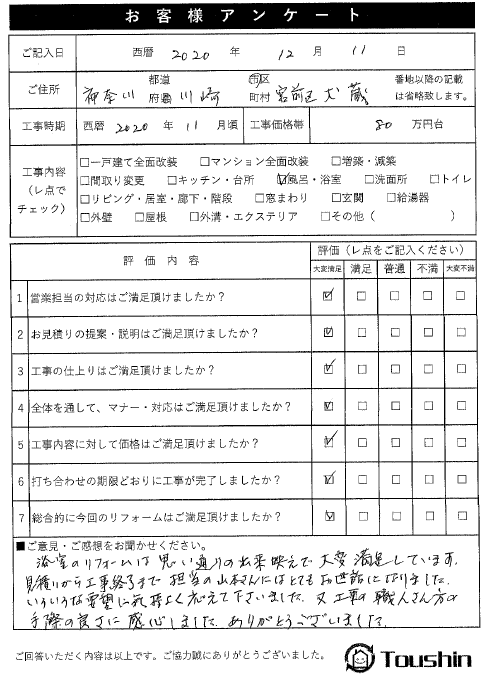 お客様アンケート
ご記入日 西暦 2020 年 12 月 11 日
ご住所 神奈川 都道府県 川崎 市区町村 宮前区犬蔵 番地以降の記載は省略致します。
工事時期 西暦 2020 年 11 月頃 工事価格帯 80 万円台
工事内容(レ点でチェック)
□一戸建て全面改装 □マンション全面改装 □増築・減築
□間取り変更 □キッチン・台所 ☑風呂・浴室 □洗面所 □トイレ
□リビング・居室・廊下・階段 □窓まわり □玄関 □給湯器
□外壁 □屋根 □外溝・エクステリア □その他( )
評価内容 評価(レ点をご記入ください)
大変満足 満足 普通 不満 大変不満
1 営業担当の対応はご満足頂けましたか? ☑ □ □ □ □
2 お見積りの提案・説明はご満足頂けましたか? ☑ □ □ □ □
3 工事の仕上りはご満足頂けましたか? ☑ □ □ □ □
4 全体を通して、マナー・対応はご満足頂けましたか? ☑ □ □ □ □
5 工事内容に対して価格はご満足頂けましたか? ☑ □ □ □ □
6 打ち合わせの期限どおりに工事が完了しましたか? ☑ □ □ □ □
7 総合的に今回のリフォームはご満足頂けましたか? ☑ □ □ □ □
■ご意見・ご感想をお聞かせください。
浴室のリフォームは思い通りの出来映えで大変満足しています。
見積りから工事終了まで担当の山本さんにはとてもお世話になりました。
いろいろな要望に気持よく応えて下さいました。又工事の職人さん方の
手際の良さに感心しました。ありがとうございました。
ご回答いただく内容は以上です。ご協力誠にありがとうございました。
Toushin